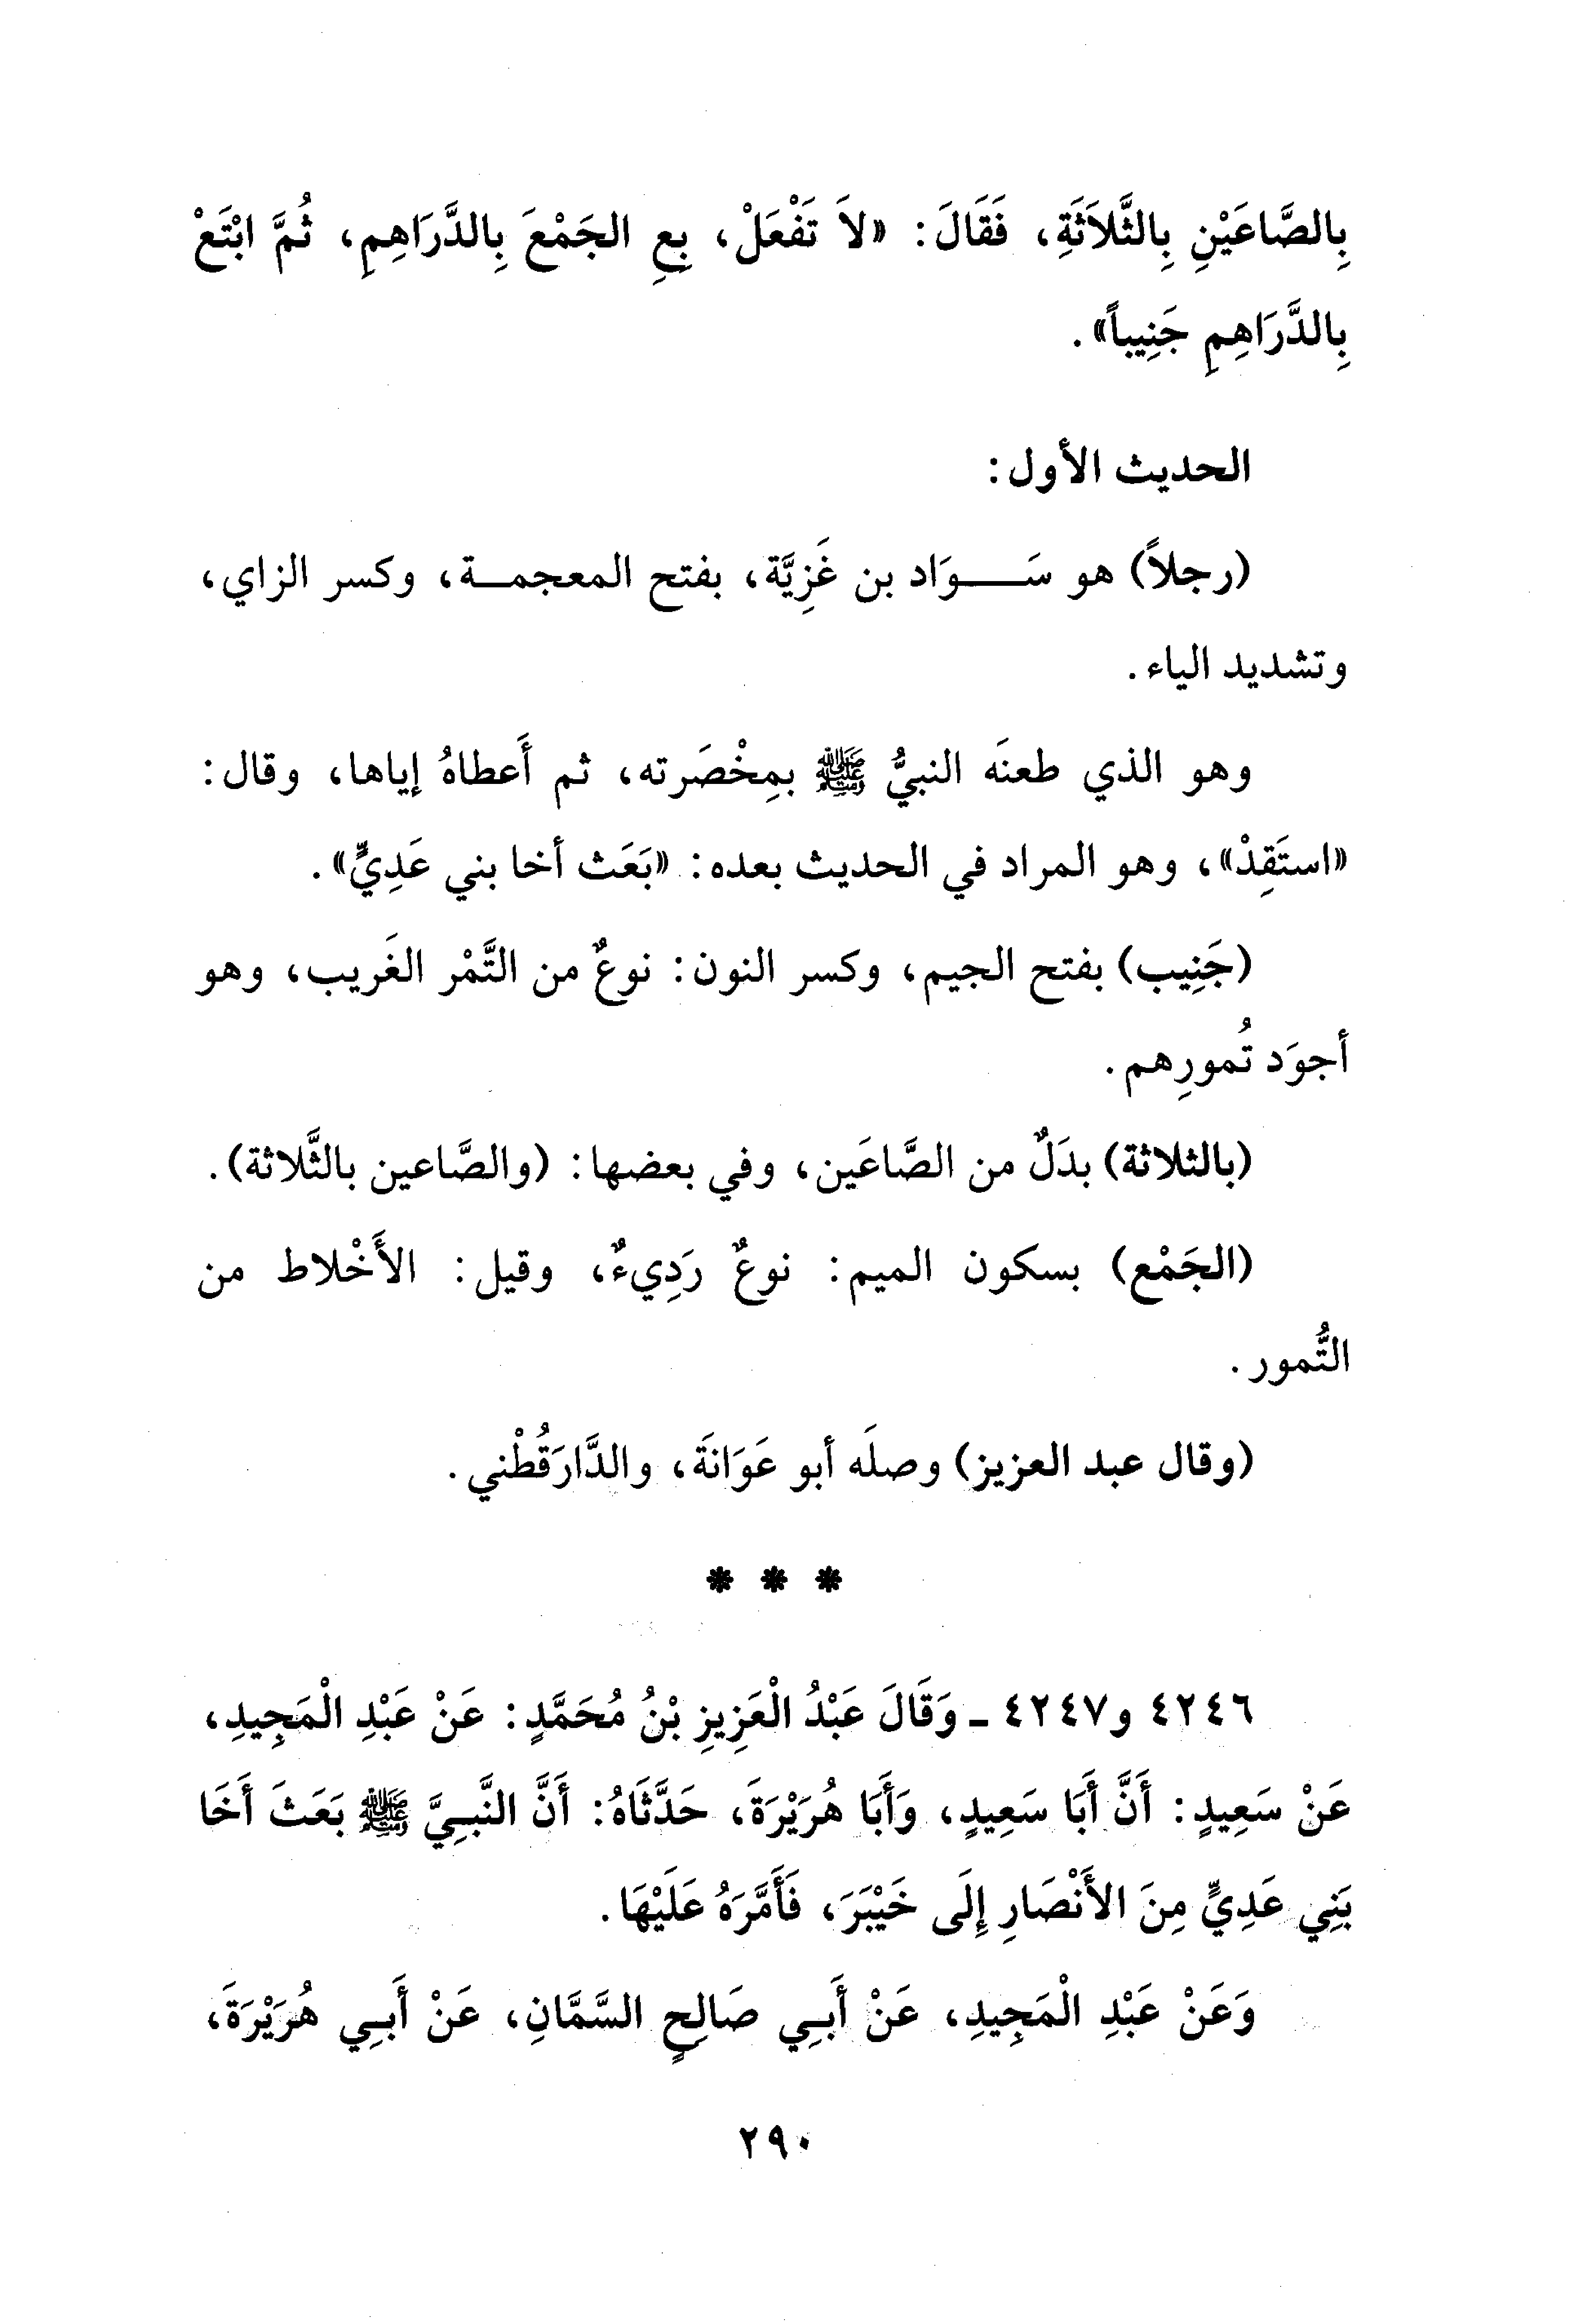 بِالصَّاعَيْنِ بِالثَّلاَثَةِ، فَقَالَ: «لاَ تَفْعَلْ، بِعِ الجَمْعَ بِالدَّرَاهِمِ، ثُمَّ ابْتَعْ
بِالدَّرَاهِمِ جَنِيباً».
الحديث الأول:
(رجلاً) هو سَـــوَاد بن غَزِيَّة، بفتح المعجمـــة، وكسر الزاي،
وتشديد الياء.
وهو الذي طعنَه النبيُّ ﷺ بمِخْصَرته، ثم أَعطاهُ إياها، وقال:
«استَقِدْ»، وهو المراد في الحديث بعده: «بَعَث أخا بني عَدِيٍّ».
(جَنِيب) بفتح الجيم، وكسر النون: نوعٌ من التَّمْر الغَريب، وهو
أجوَد تُمورِهم.
(بالثلاثة) بدَلٌ من الصَّاعَين، وفي بعضها: (والصَّاعين بالثَّلاثة).
(الجَمْع) بسكون الميم: نوعٌ رَدِيءٌ، وقيل: الأَخْلاط من
التُّمور.
(وقال عبد العزيز) وصلَه أبو عَوَانَة، والدَّارَقُطْني.
* * *
٤٢٤٦ و٤٢٤٧ ـ وَقَالَ عَبْدُ الْعَزِيزِ بْنُ مُحَمَّدٍ: عَنْ عَبْدِ الْمَجِيدِ،
عَنْ سَعِيدٍ: أَنَّ أَبَا سَعِيدٍ، وَأَبَا هُرَيْرَةَ، حَدَّثَاهُ: أَنَّ النَّبِيَّ ﷺ بَعَثَ أَخَا
بَنِي عَدِيٍّ مِنَ الأَنْصَارِ إِلَى خَيْبَرَ، فَأَمَّرَهُ عَلَيْهَا.
وَعَنْ عَبْدِ الْمَجِيدِ، عَنْ أَبِي صَالِحٍ السَّمَّانِ، عَنْ أَبِي هُرَيْرَةَ،
٢٩٠